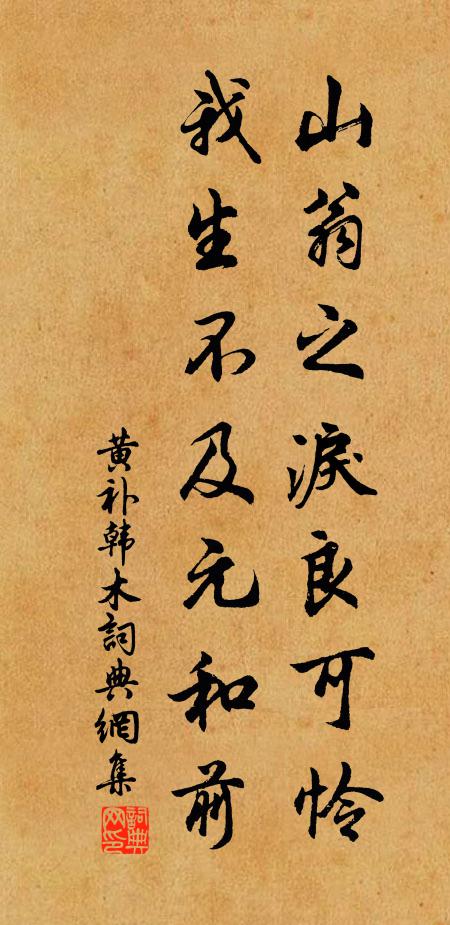 山翁之淚良可怜
我生不及元和前
黄补韩木詞典網集
詞典网印